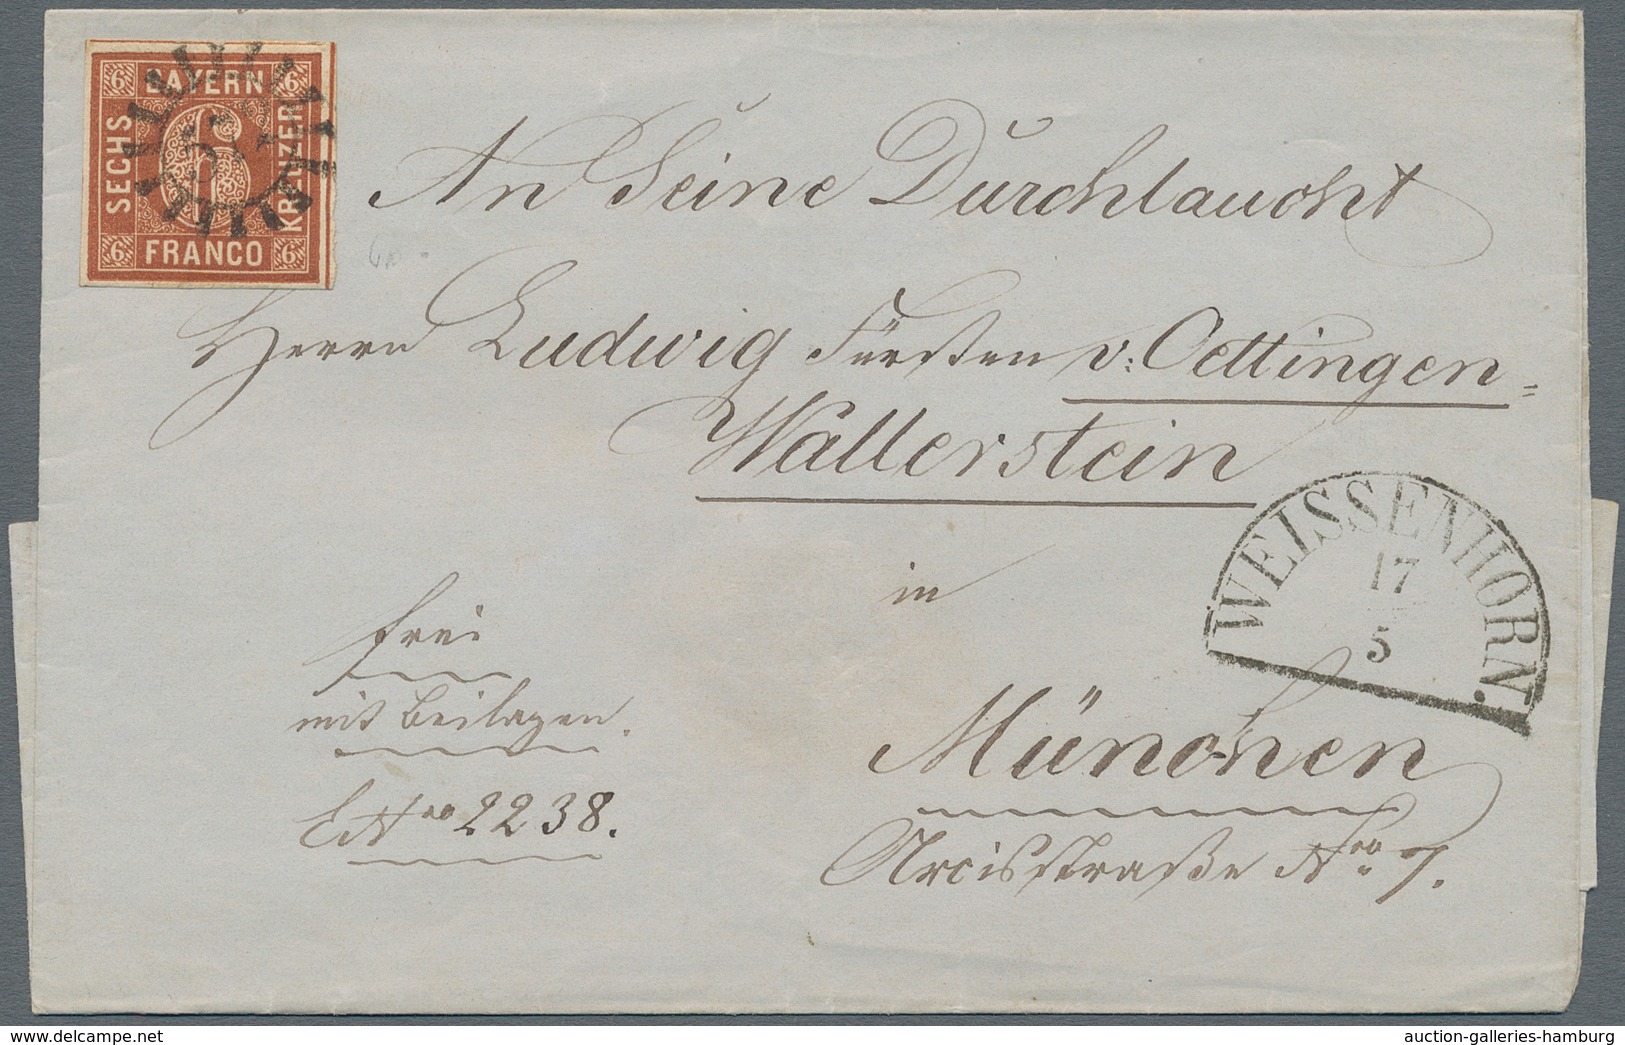 6 BAYERN 6
SECHS
KREUZER
6
6 FRANCO 6
An Seine Durchlaucht
Herrn Ludwig Fürsten v: Oettingen=
Wallerstein
WEISSENHORN.
17
5
in
frei
mit Beilagen.
München
ENro 2238.
Arcisstraße Nro 7.
auction-galleries-hamburg